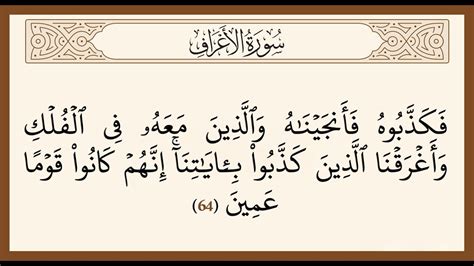 سُورَةُ الأَعْرَافِ
فَكَذَّبُوهُ فَأَنجَيْنَٰهُ وَٱلَّذِينَ مَعَهُۥ فِى ٱلْفُلْكِ
وَأَغْرَقْنَا ٱلَّذِينَ كَذَّبُوا۟ بِـَٔايَٰتِنَآ ۚ إِنَّهُمْ كَانُوا۟ قَوْمًا
عَمِينَ (64)